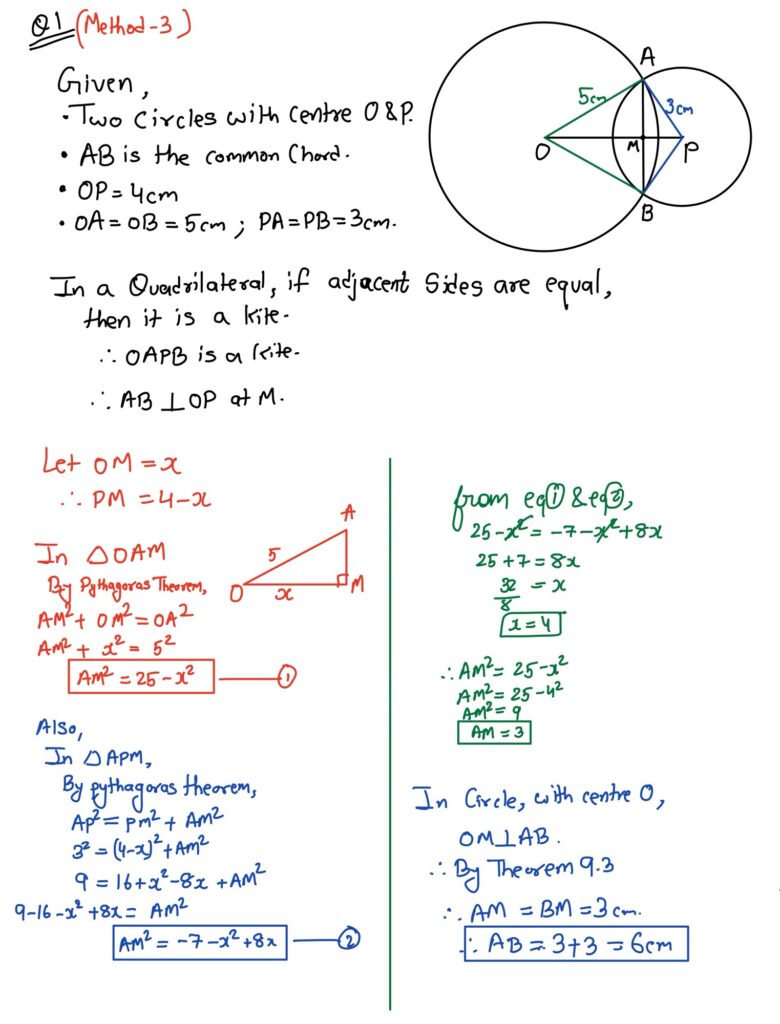 Q1 (Method-3)
Given,
• Two Circles with Centre O & P.
• AB is the common Chord.
• OP = 4cm
• OA = OB = 5cm ; PA = PB = 3cm.
A
5cm
3cm
O
M
P
B
In a Quadrilateral, if adjacent Sides are equal,
then it is a kite.
∴ OAPB is a kite.
∴ AB ⊥ OP at M.
Let OM = x
∴ PM = 4-x
In △OAM
By Pythagoras Theorem,
AM² + OM² = OA²
AM² + x² = 5²
AM² = 25 - x² ①
A
5
O
x
M
Also,
In △APM,
By pythagoras theorem,
AP² = PM² + AM²
3² = (4-x)² + AM²
9 = 16 + x² - 8x + AM²
9-16-x²+8x = AM²
AM² = -7-x²+8x ②
from eq① & eq②,
25-x² = -7-x²+8x
25+7 = 8x
32/8 = x
x = 4
∴ AM² = 25-x²
AM² = 25-4²
AM² = 9
AM = 3
In Circle, with centre O,
OM ⊥ AB.
∴ By Theorem 9.3
∴ AM = BM = 3cm.
∴ AB = 3+3 = 6cm